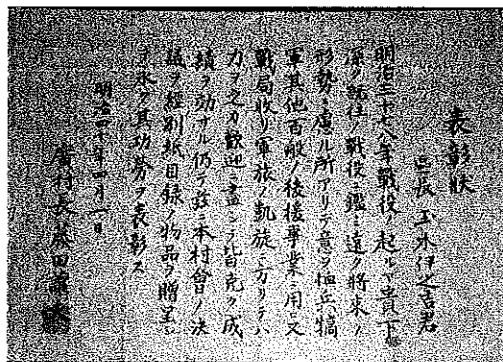 表彰状
区長 玉木伊之吉君
明治三十七八年戦役ノ起ルヤ貴下
深ク既往ノ戦役ニ鑑ミ遠ク将来ノ
形勢ニ慮ル所アリテ意ヲ恤兵犒
軍其他百般ノ後援事業ニ用ヒ又
戦局収リ軍旅ノ凱旋スニ方リテハ
力ヲ之カ歓迎ニ盡シテ皆克ク成
績ヲ効ナル仍テ茲ニ本村會ノ決
議ヲ経別紙目録ノ物品ヲ贈呈シ
ヲ永ク其功労ヲ表彰ス
明治四十年四月一日
廣村長藤田